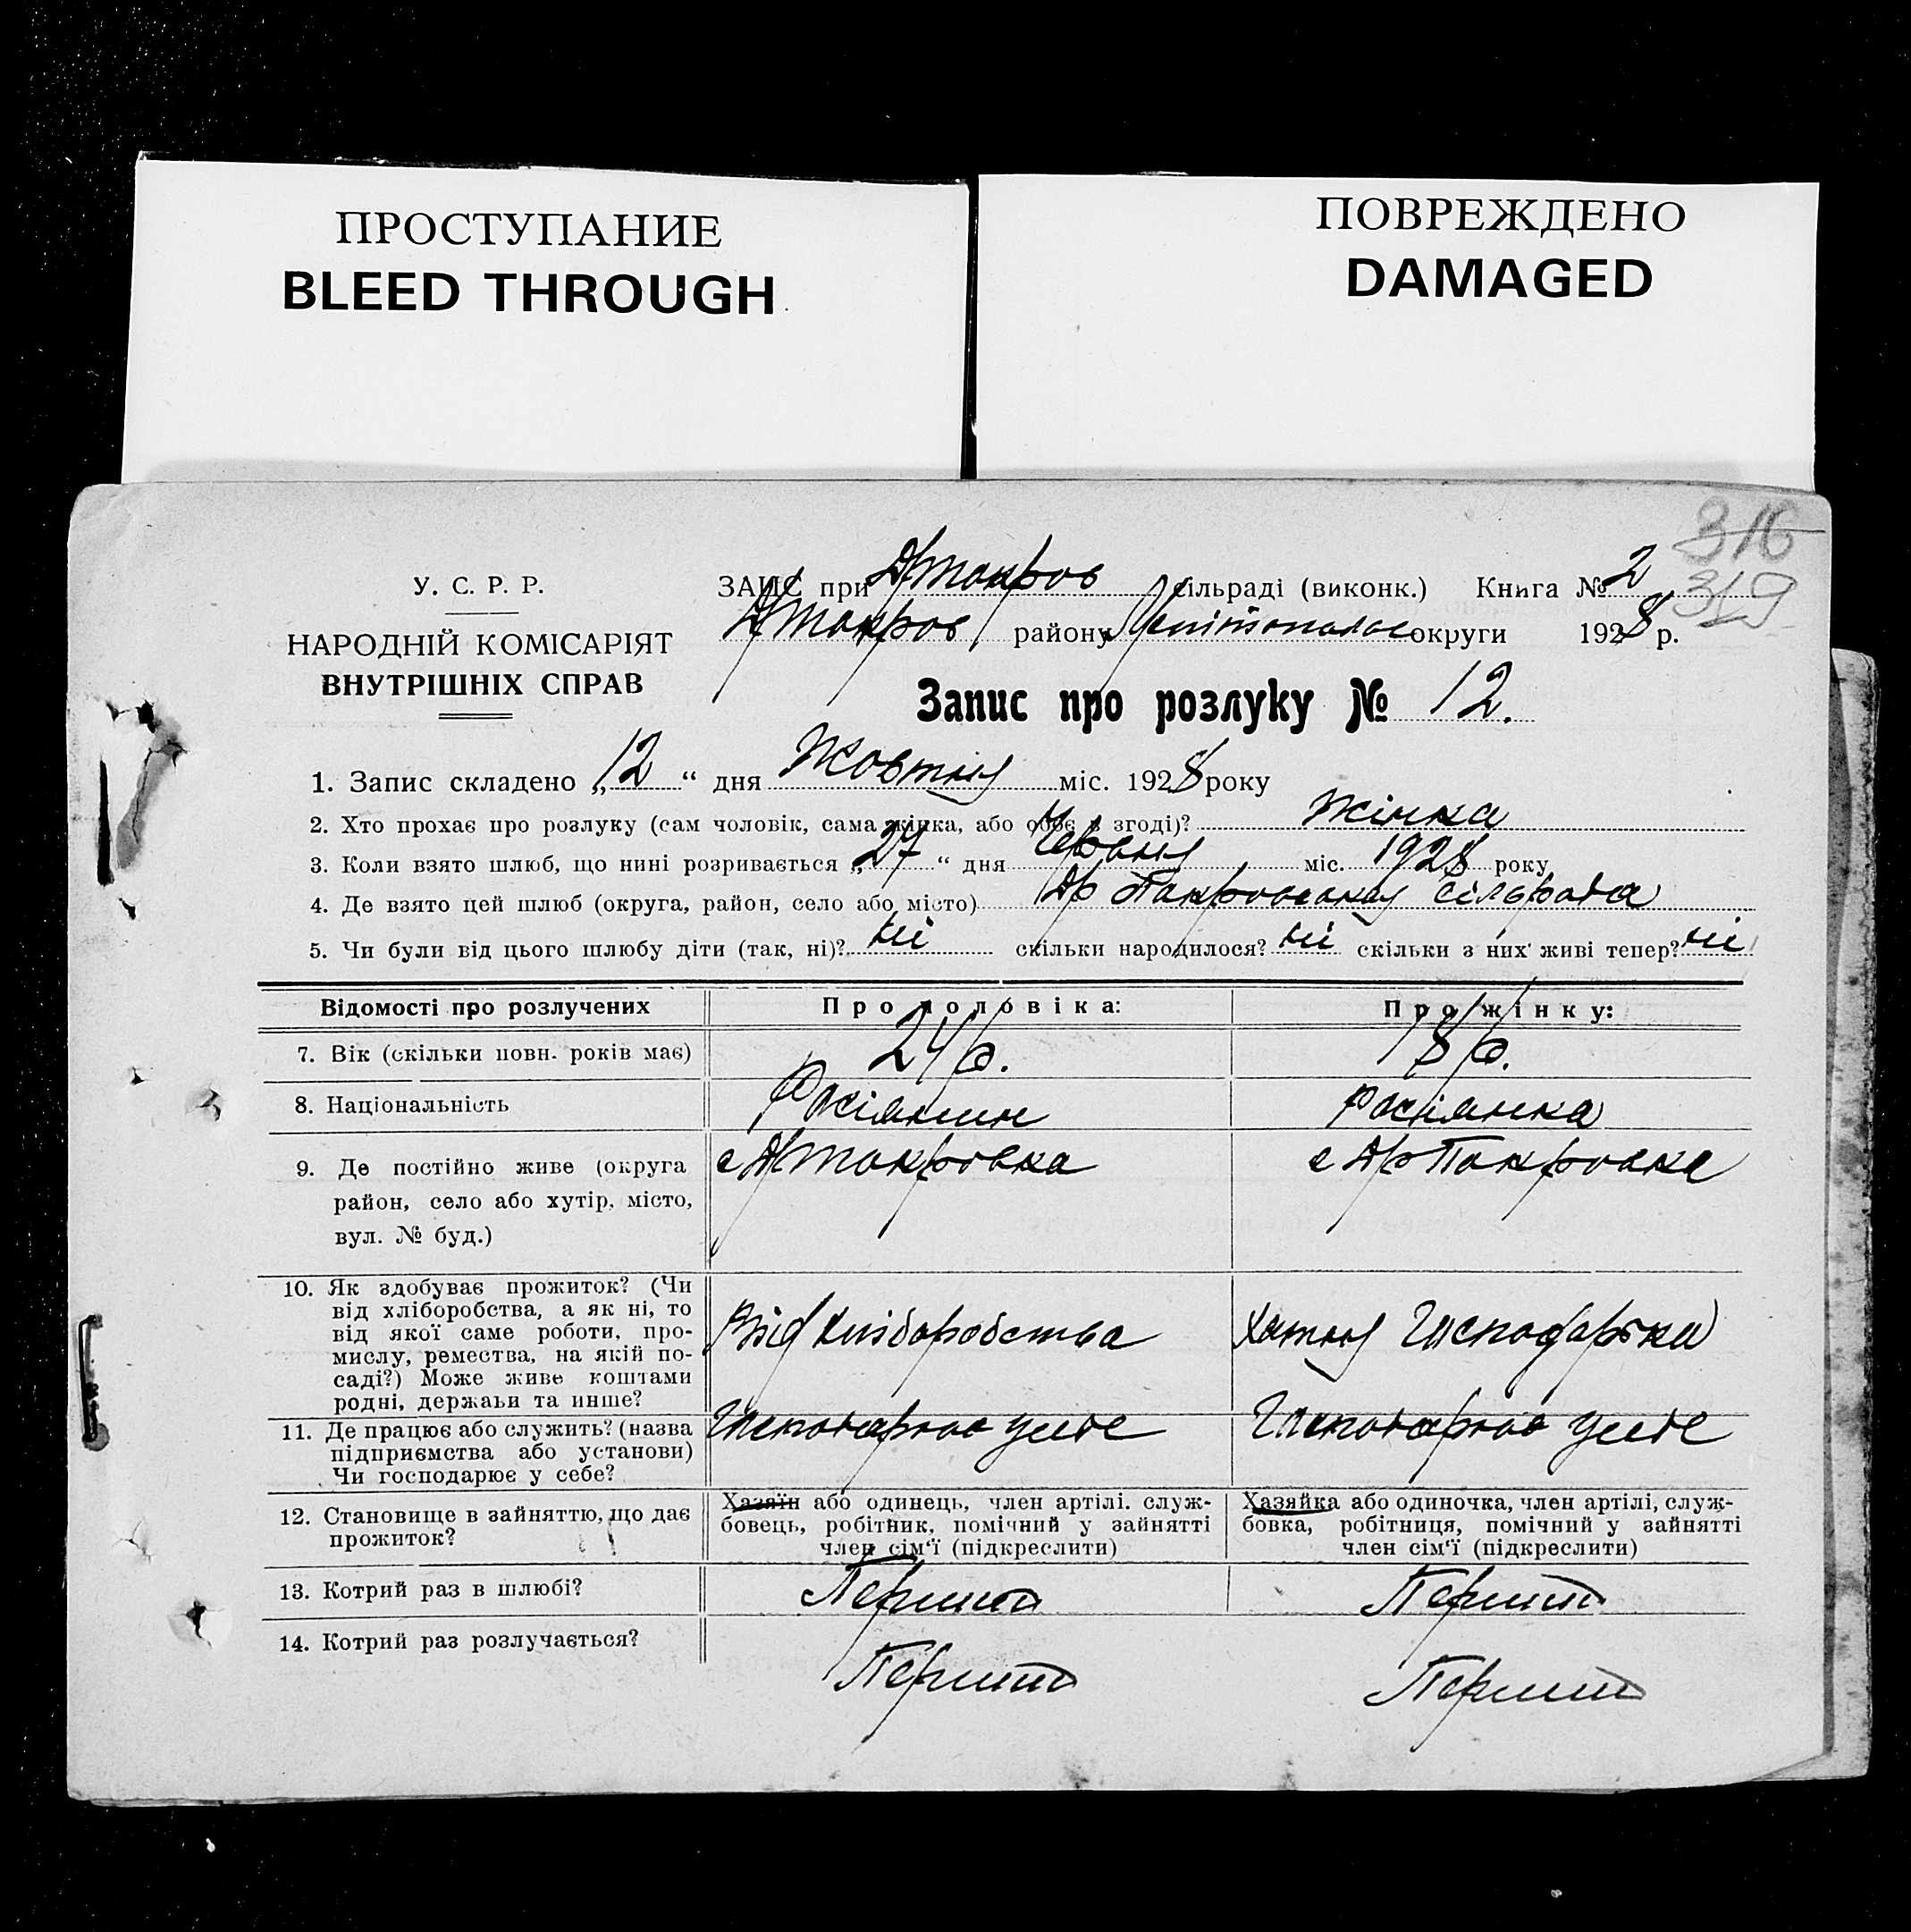 ПРОСТУПАНИЕ
BLEED THROUGH
ПОВРЕЖДЕНО
DAMAGED
316
319
У. С. Р. Р.
НАРОДНІЙ КОМІСАРІЯТ
ВНУТРІШНІХ СПРАВ
ЗАПИС при сільраді (виконк.) Книга № 2
району округи 1928 р.
Запис про розлуку № 12.
1. Запис складено „12“ дня Жовтня міс. 1928 року
2. Хто прохає про розлуку (сам чоловік, сама жінка, або обоє в згоді)? Жінка
3. Коли взято шлюб, що нині розривається „27“ дня Червня міс. 1928 року
4. Де взято цей шлюб (округа, район, село або місто) Др Покровська сільрада
5. Чи були від цього шлюбу діти (так, ні)? ні скільки народилося? ні скільки з них живі тепер? ні
Відомості про розлучених Про чоловіка: Про жінку:
7. Вік (скільки повн. років має) 24 р. 18 р.
8. Національність Росіянин росіянка
9. Де постійно живе (округа
район, село або хутір, місто,
вул. № буд.)
с Др Покровка
с Др Покровка
10. Як здобуває прожиток? (Чи
від хліборобства, а як ні, то
від якої саме роботи, про-
мислу, ремества, на якій по-
саді?) Може живе коштами
родні, держави та инше?
Від хліборобства
Хатня Господарка
11. Де працює або служить? (назва
підприємства або установи)
Чи господарює у себе?
12. Становище в зайняттю, що дає
прожиток?
Хазяїн або одинець, член артілі. служ-
бовець, робітник, помічний у зайнятті
член сім'ї (підкреслити)
Хазяйка або одиночка, член артілі, служ-
бовка, робітниця, помічний у зайнятті
член сім'ї (підкреслити)
13. Котрий раз в шлюбі? Перший Перший
14. Котрий раз розлучається? Перший Перший